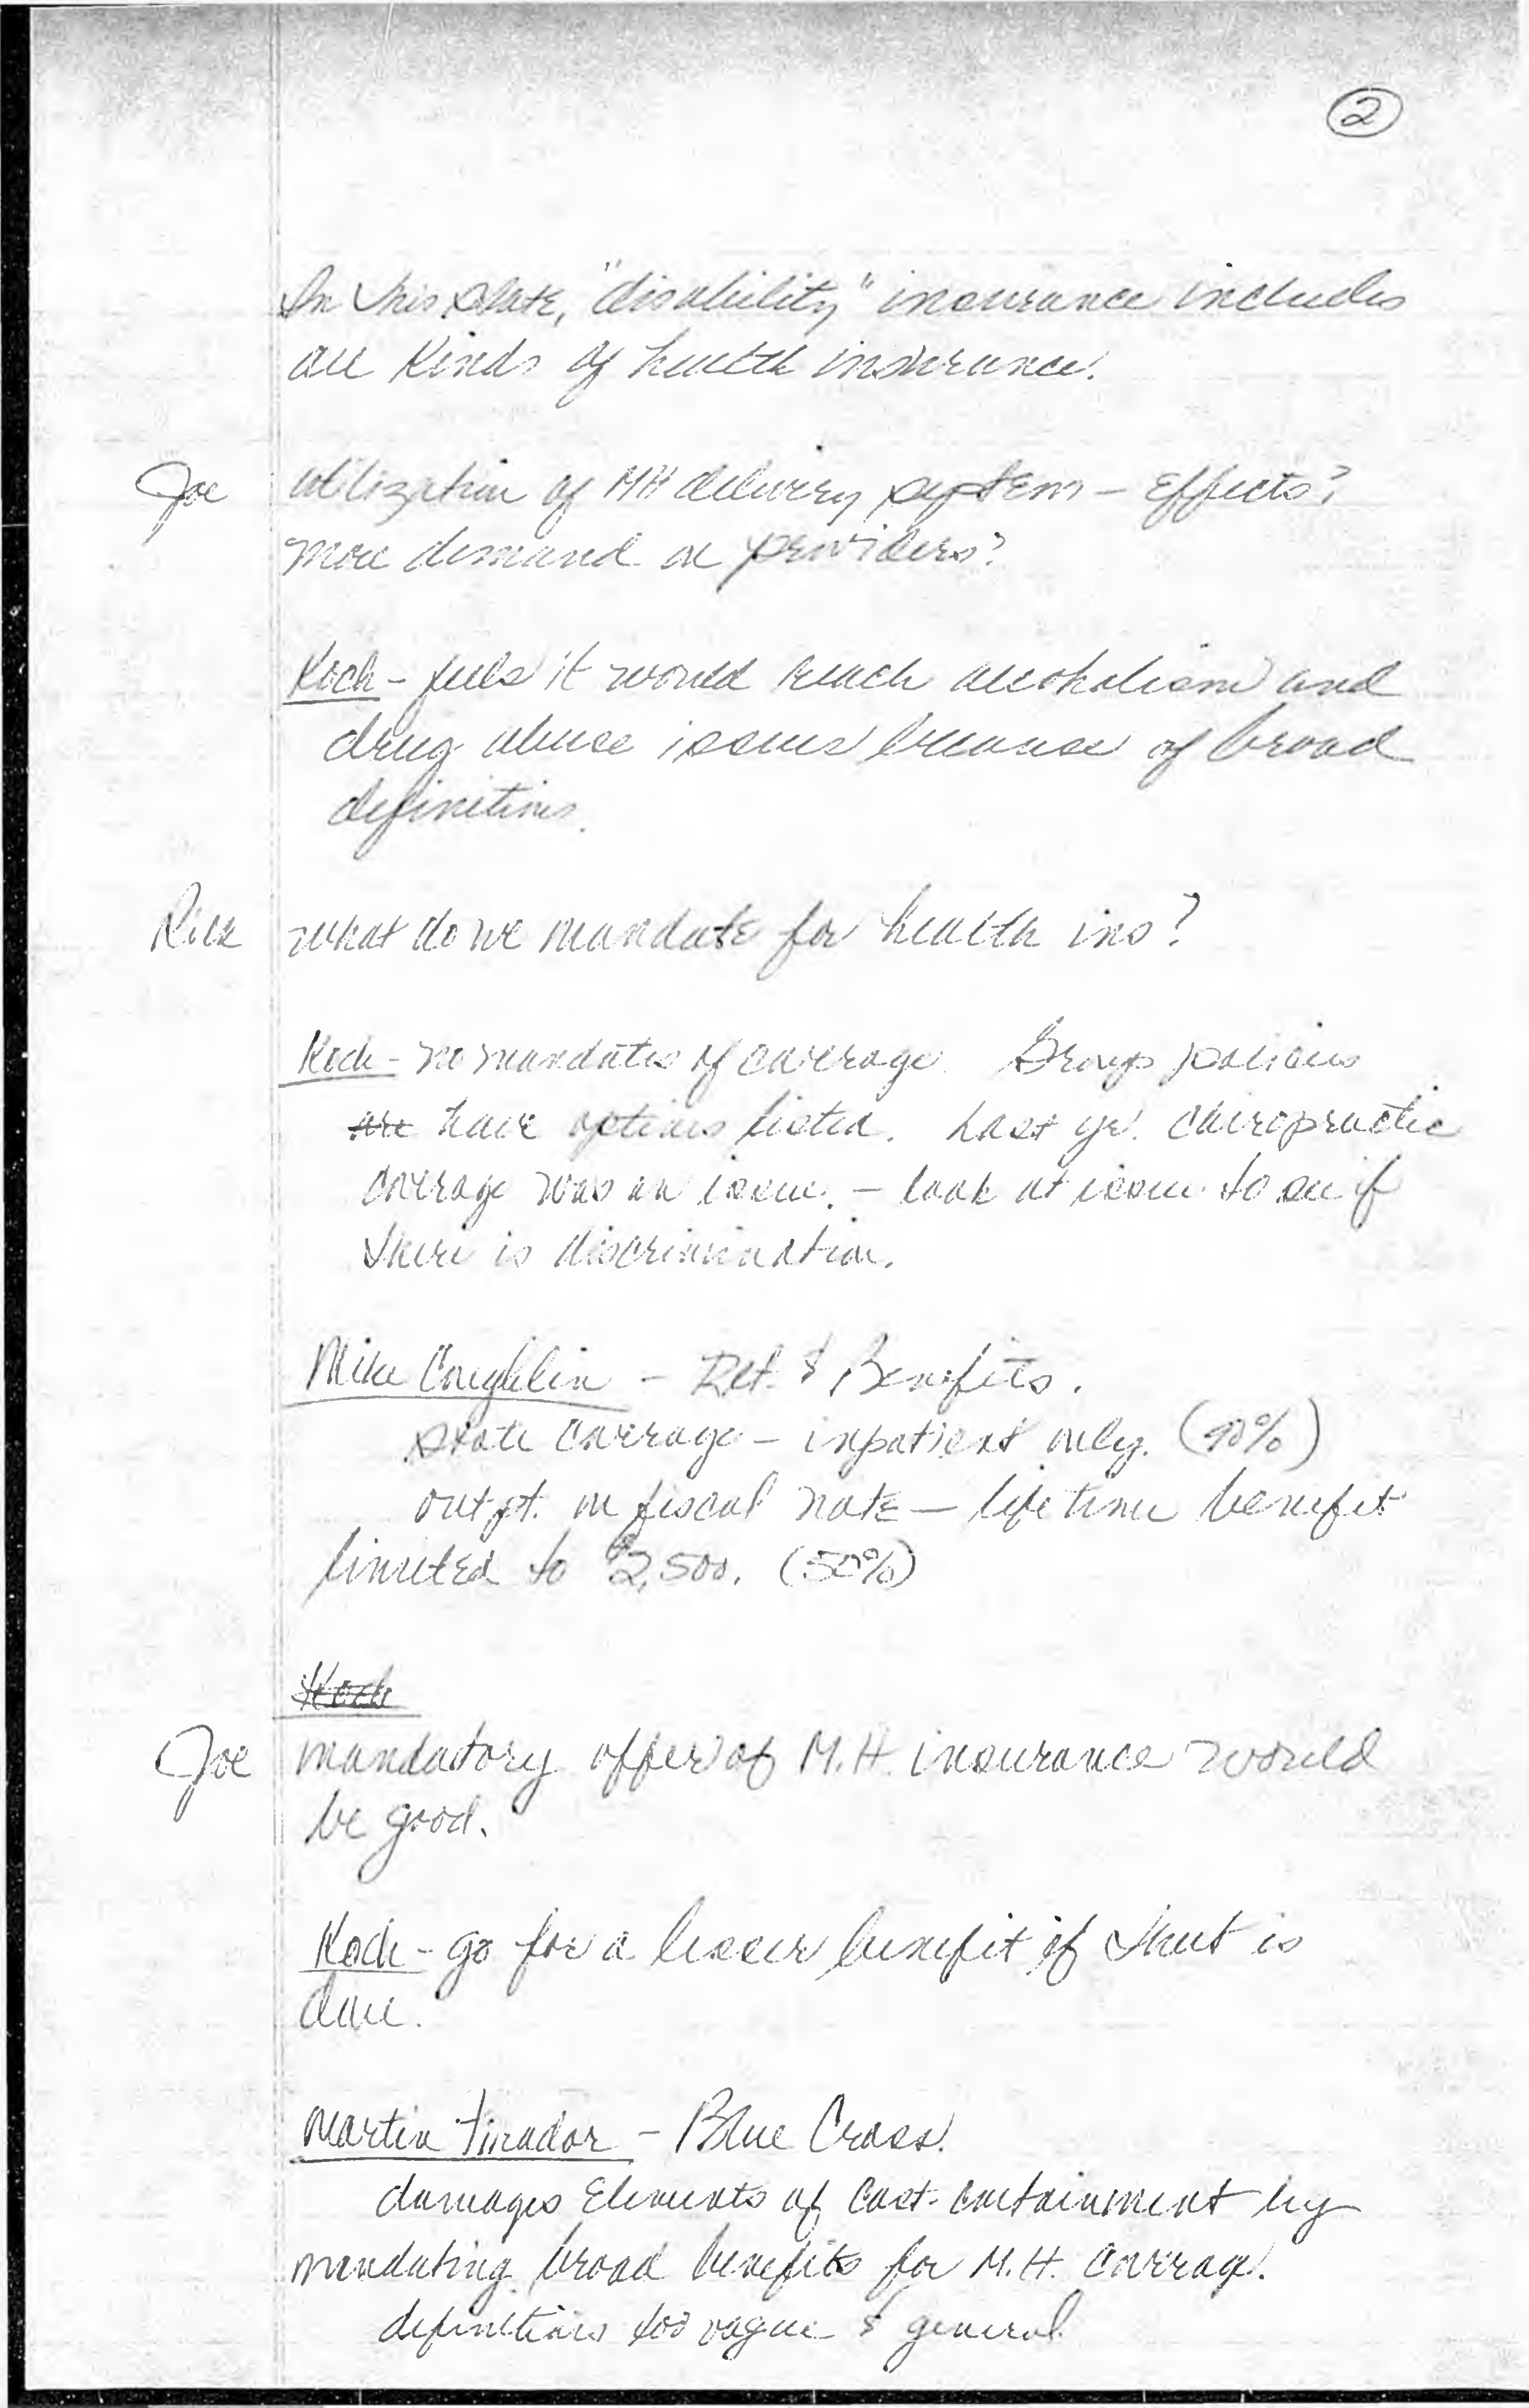 ②
In this state, "disability" insurance includes
all kinds of health insurance.
Joe utilization of MH delivery system - effects?
more demand on providers?
Koch - feels it would reach alcoholism and
drug abuse issues because of broad
definitions.
Rick what do we mandate for health ins?
Koch - no mandates of coverage. Group policies
are have options listed. Last yr. chiropractic
coverage was an issue. - look at issue to see if
there is discrimination.
Mike Coughlin - Ret. & Benefits.
state coverage - inpatient only. (90%)
outpt. on fiscal note - lifetime benefit
limited to $2,500. (50%)
Koch
Joe mandatory offer of M.H. insurance would
be good.
Koch - go for a lesser benefit if that is
done.
Martin - Blue Cross.
damages elements of cost-containment by
mandating broad benefits for M.H. coverage.
definitions too vague & general